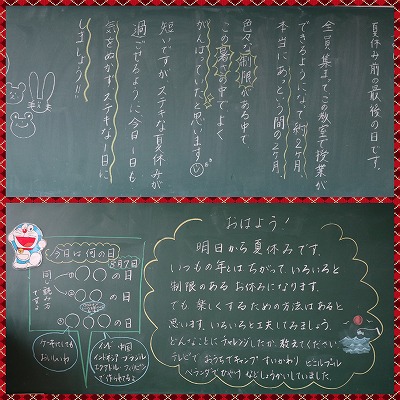 夏休み前の最後の日です。
全員集まってこの教室で授業が
できるようになって約2ヶ月
本当にあっという間の2ヶ月。
色々な制限がある中で
この暑さの中でよく
がんばってきたと思います
短いですがステキな夏休みが
過ごせるように、今日1日も
気をぬかずステキな1日に
しましょう!!
おはよう!
明日から夏休みです。
いつもの年とはちがって、いろいろと
制限のあるお休みになります。
でも、楽しくするための方法はあると
思います。いろいろと工夫してみましょう。
どんなことにチャレンジしたか、教えてください
テレビで、おうちでキャンプ すいかわり ビニルプール
ベランダでかやり などしょうかいしていました。
今日は何の日
8月7日
同じ読み方
ですよ
①○○の日
②○○の日
③○○の日
ケーキにしても
おいしいね
インド 中国
インドネシア ブラジル
エクアドル フィリピン
で作られてるよ